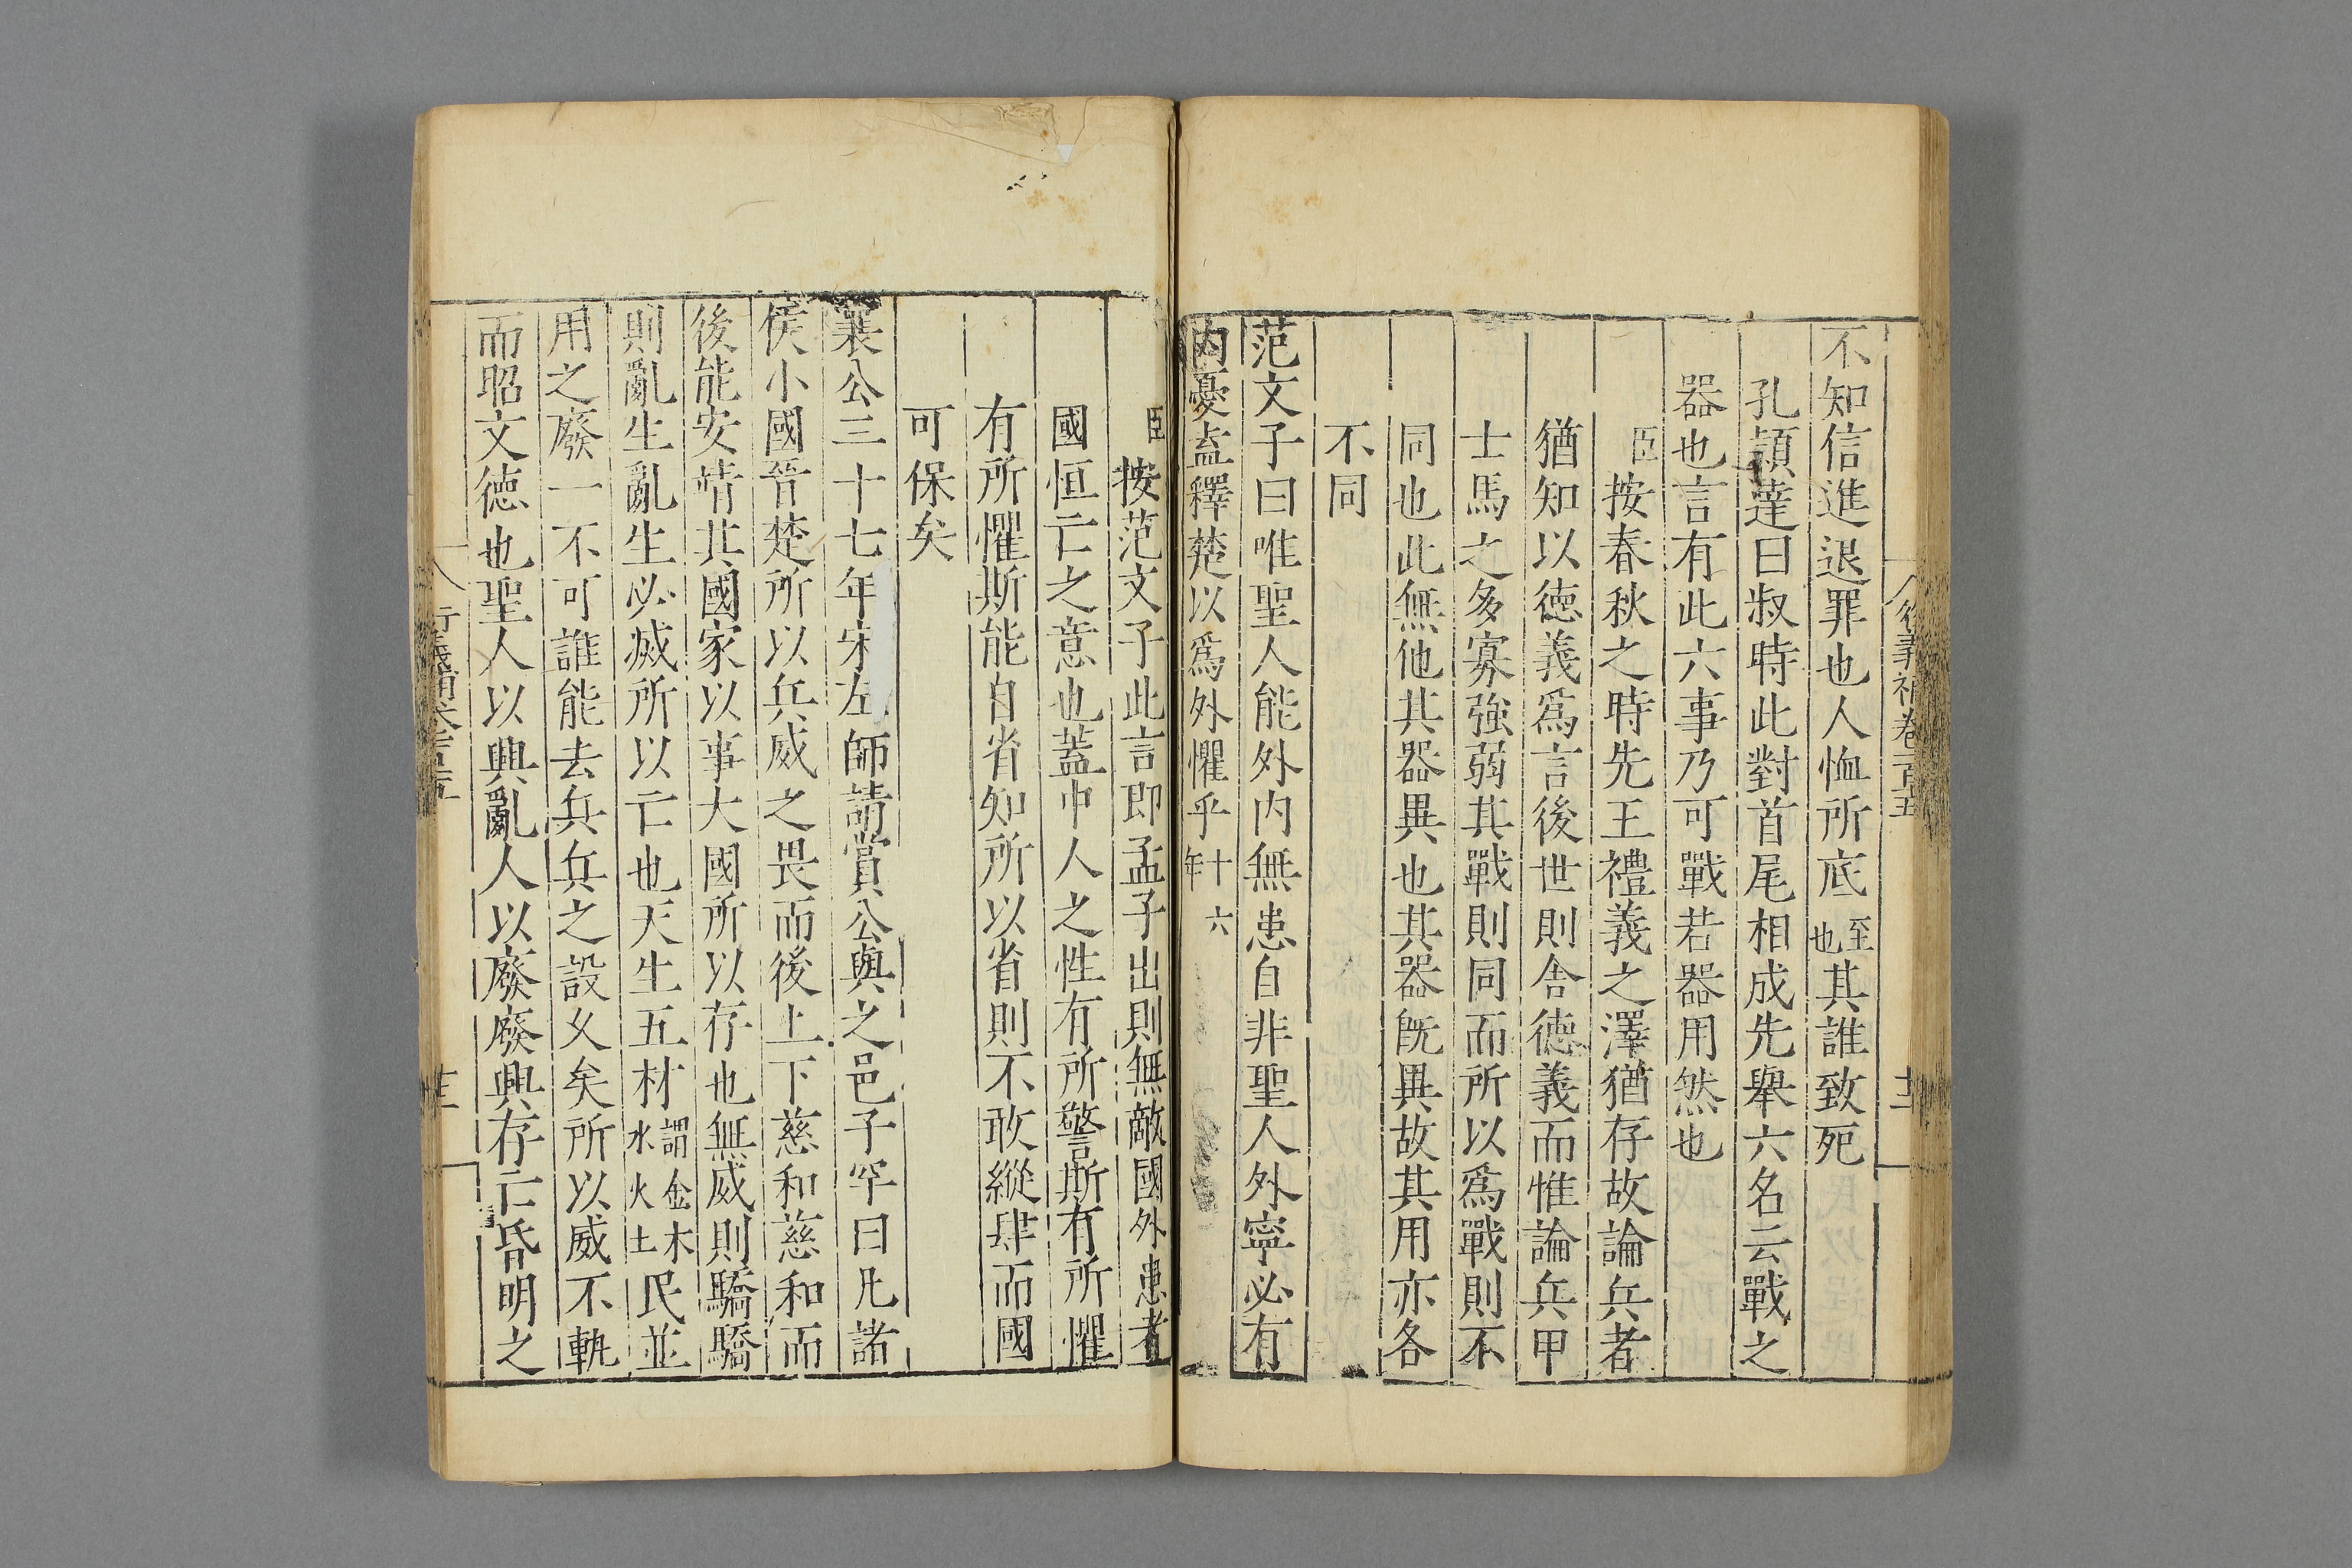 不知信進退罪也人恤所底至也其誰致死
孔頴達曰叔時此對首尾相成先舉六名云戰之
器也言有此六事乃可戰若器用然也
臣按春秋之時先王禮義之澤猶存故論兵者
猶知以德義爲言後世則舍德義而惟論兵甲
士馬之多寡強弱其戰則同而所以爲戰則不
同也此無他其器異也其器旣異故其用亦各
不同
范文子曰唯聖人能外内無患自非聖人外寧必有
内憂盍釋楚以爲外懼乎十六年
臣按范文子此言即孟子出則無敵國外患者
國恒亡之意也蓋中人之性有所警斯有所懼
有所懼斯能自省知所以省則不敢縱肆而國
可保矣
襄公三十七年宋左師請賞公與之邑子罕曰凡諸
侯小國晉楚所以兵威之畏而後上下慈和慈和而
後能安靖其國家以事大國所以存也無威則驕驕
則亂生亂生必滅所以亡也天生五材謂金木水火土民並
用之廢一不可誰能去兵兵之設乆矣所以威不軌
而昭文德也聖人以興亂人以廢廢興存亡昏明之